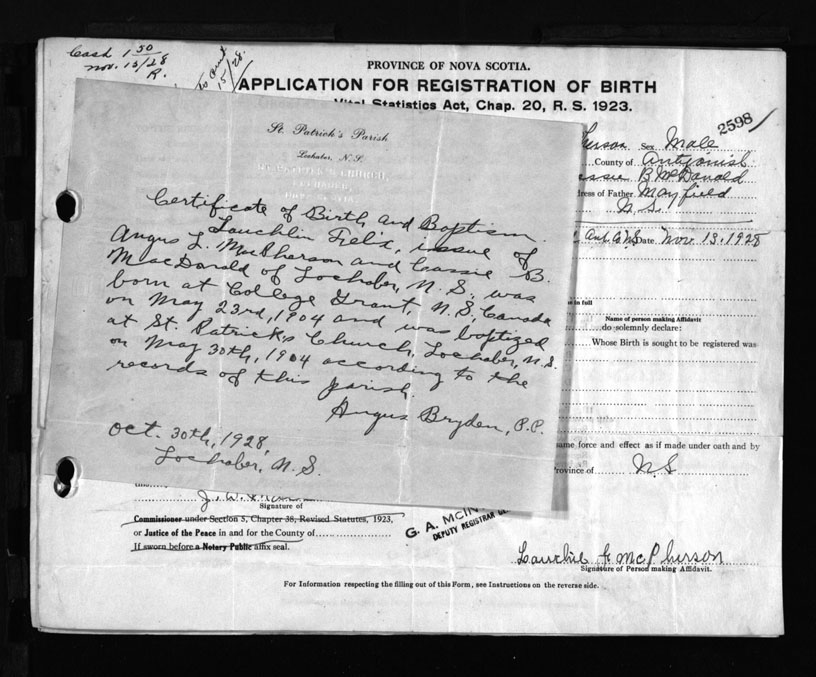 Cash 1 50
Nov. 13/28
R.
15/28.
PROVINCE OF NOVA SCOTIA.
APPLICATION FOR REGISTRATION OF BIRTH
Vital Statistics Act, Chap. 20, R. S. 1923.
2598
Sex Male
County of Antigonish
B McDonald
dress of Father Mayfield
N.S.
Date Nov. 13, 1928
St. Patrick's Parish
Lochaber, N.S.
Certificate of Birth and Baptism.
Lauchlin Felix, issue of
Angus L. MacPherson and Cassie B.
MacDonald of Lochaber, N.S., was
born at College Grant, N.S., Canada
on May 23rd, 1904 and was baptized
at St. Patricks Church, Lochaber, N.S.
on May 30th, 1904 according to the
records of this parish.
Angus Bryden, P.P.
Oct. 30th, 1928,
Lochaber, N.S.
in full
Name of person making Affidavit
do solemnly declare:
Whose Birth is sought to be registered was
same force and effect as if made under oath and by
Province of N S
Signature of
Commissioner under Section 5, Chapter 38, Revised Statutes, 1923,
or Justice of the Peace in and for the County of
If sworn before a Notary Public affix seal.
G. A. MCIN
DEPUTY REGISTRAR GE
Lauchie F McPherson
Signature of Person making Affidavit.
For Information respecting the filling out of this Form, see Instructions on the reverse side.